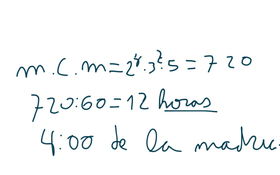 m.C.m=2⁴·3²·5=720
720:60=12 horas
4:00 de la madru